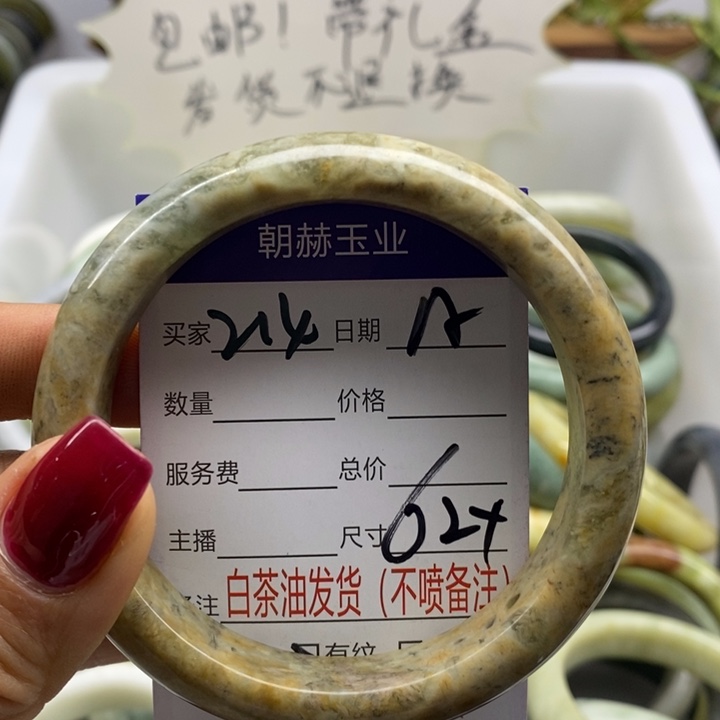 包邮！带礼盒
发货不退换
朝赫玉业
买家 214 日期
数量 价格
服务费 总价
主播 尺寸 62+
注 白茶油发货（不喷备注）
有纹